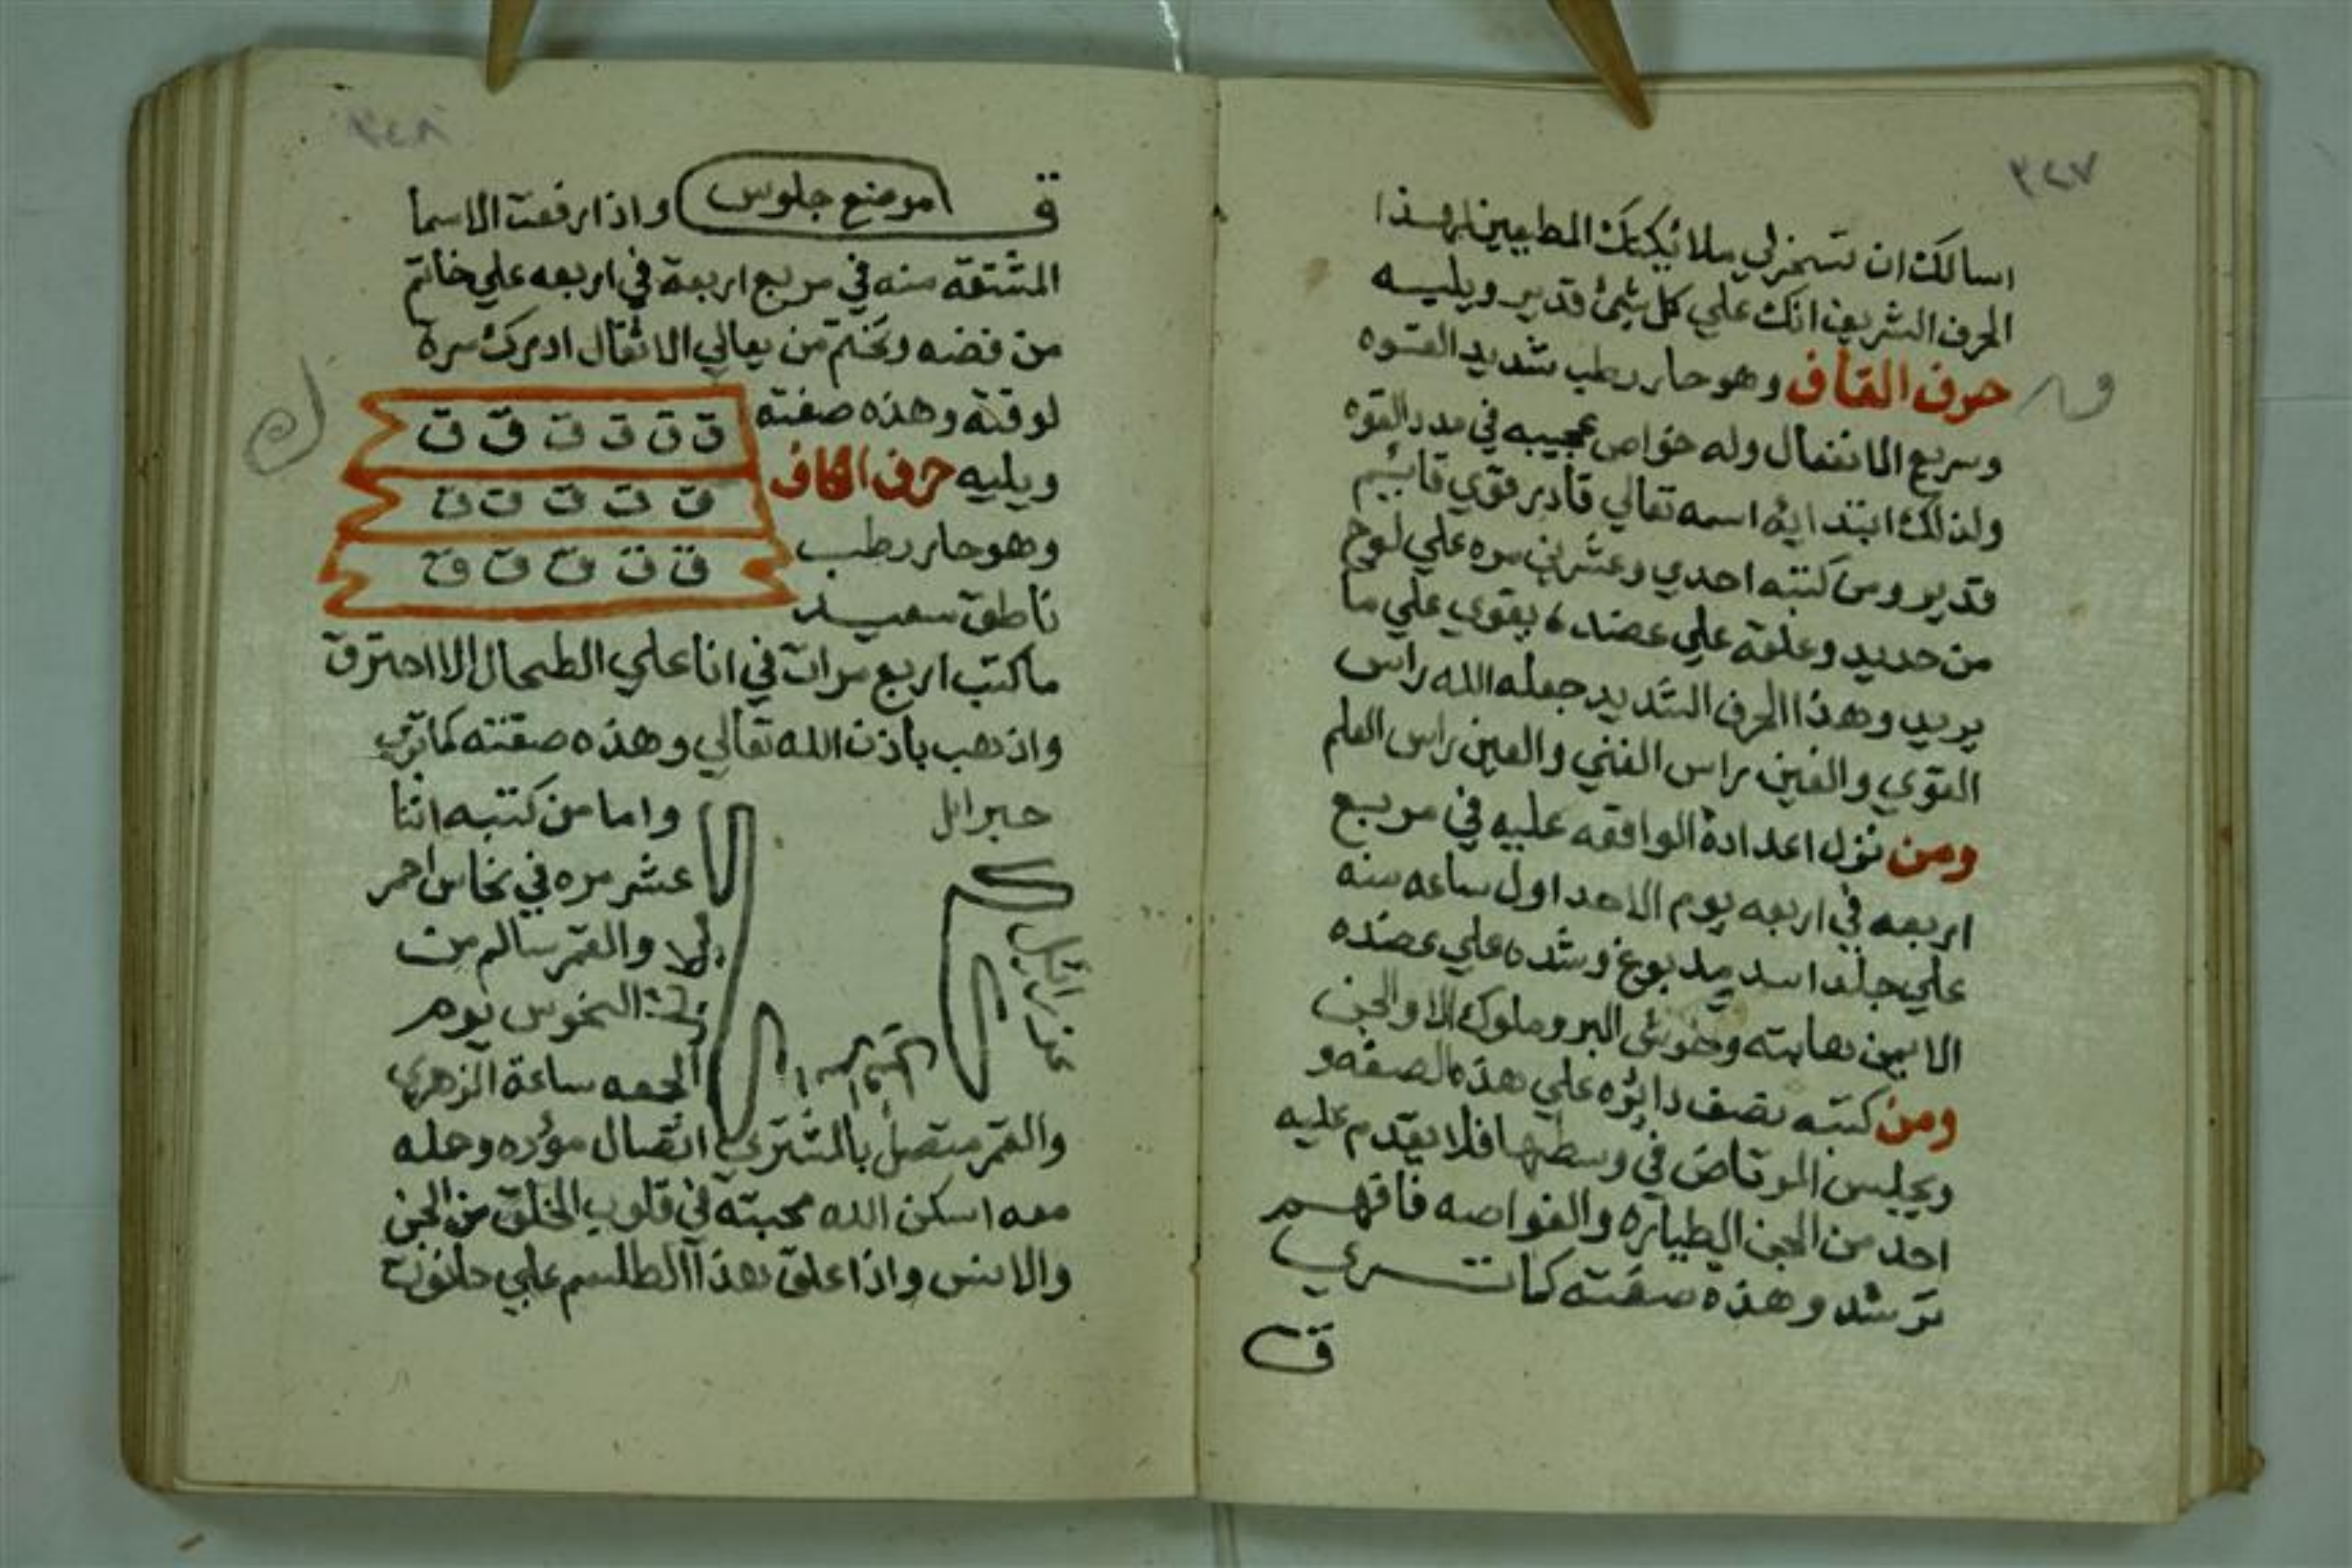 ٣٤٧
اسالك ان تسخر لي ملائيكتك المطيعين لهذا
الحرف الشريف انك علي كل شئ قدير ويليه
حرف القاف وهو حار رطب شديد القوه
وسريع الانفعال وله خواص عجيبه في مدد القوه
ولذلك ابتدا اية اسمه تعالي قادر قوي قائيم
قدير ومن كتبه احدي وعشرين مره علي لوح
من حديد وعلقه علي عضده يقوي علي ما
يريد وهذا الحرف الشديد جعله الله راس
القوي والغين راس الغني والعين راس العلم
ومن نزل اعدادة الوافقه عليه في مربع
اربعه في اربعه يوم الاحد اول ساعه منه
علي جلد اسد مدبوغ وشده علي عضده
الايمن هابته وحوش البر وملوك الا والجن
ومن كتبه نصف دايره علي هذه الصفه و
ويجلس المرتاض في وسطها فلا يقدم عليه
احد من الجن الطياره والغواصه فافهم
ترشد وهذه صفته كما تري
ق
ق
٣٤٨
ق موضع جلوس واذا رفعت الاسما
المشتقة منه في مربع اربعة في اربعه علي خاتم
من فضه وتختم من يعاني الاثقال ادرك سرة
لوقتة وهذه صفته
ق ق ق ق ق ق
ويليه حرف الكاف
ق ق ق ق ق
وهو حار رطب
ق ق ق ق ق
ناطق سعيد
ك
ما كتب اربع مرات في انا علي الطحال الا احترق
واذهب باذن الله تعالي وهذه صفته كما تري
جبرائل
واما من كتبه اثنا
عشر مره في نحاس احمر
والقمر سالم من
النحوس يوم
الجمعه ساعة الزهرى
والقمر متصل بالمشتري اتصال مؤده وحمله
معه اسكن الله محبته في قلوب الخلق من الجن
والانس واذا علق هذا الطلسم علي حانوت